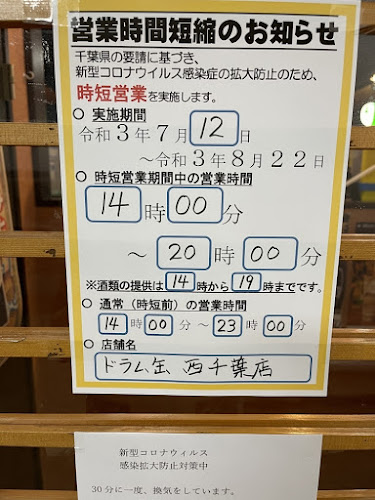 営業時間短縮のお知らせ
千葉県の要請に基づき、
新型コロナウイルス感染症の拡大防止のため、
時短営業を実施します。
○ 実施期間
令和3年7月12日
～令和3年8月22日
○ 時短営業期間中の営業時間
14時00分
～20時00分
※酒類の提供は14時から19時までです。
○ 通常（時短前）の営業時間
14時00分～23時00分
○ 店舗名
ドラム缶 西千葉店
新型コロナウィルス
感染拡大防止対策中
30分に一度、換気をしています。